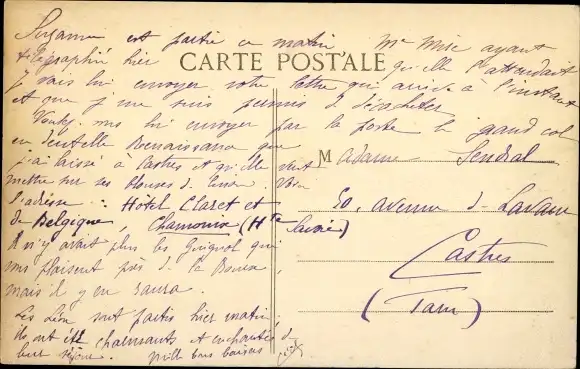 Suzanne est partie ce matin Mme Mise ayant
télégraphié hier qu'elle l'attendait
CARTE POSTALE
Je vais lui envoyer votre lettre qui arrive à l'instant
et que je me suis permis de décacheter.
Voulez-vous lui envoyer par la poste le grand col
en dentelle Renaissance que
j'ai laissé à Castres et qu'elle veut
mettre sur ses blouses de
l'adresse : Hotel Claret et
de Belgique, Chamonix (Hte Savoie)
Il n'y avait plus les Guignol qui
vous plaisent près de la Bourse,
mais il y en aura.
Les Léon sont partis hier matin
ils ont été charmants et enchantés de
leur séjour. mille bons baisers
M adame Sendral
50, avenue de Lavaur
Castres
(Tarn)